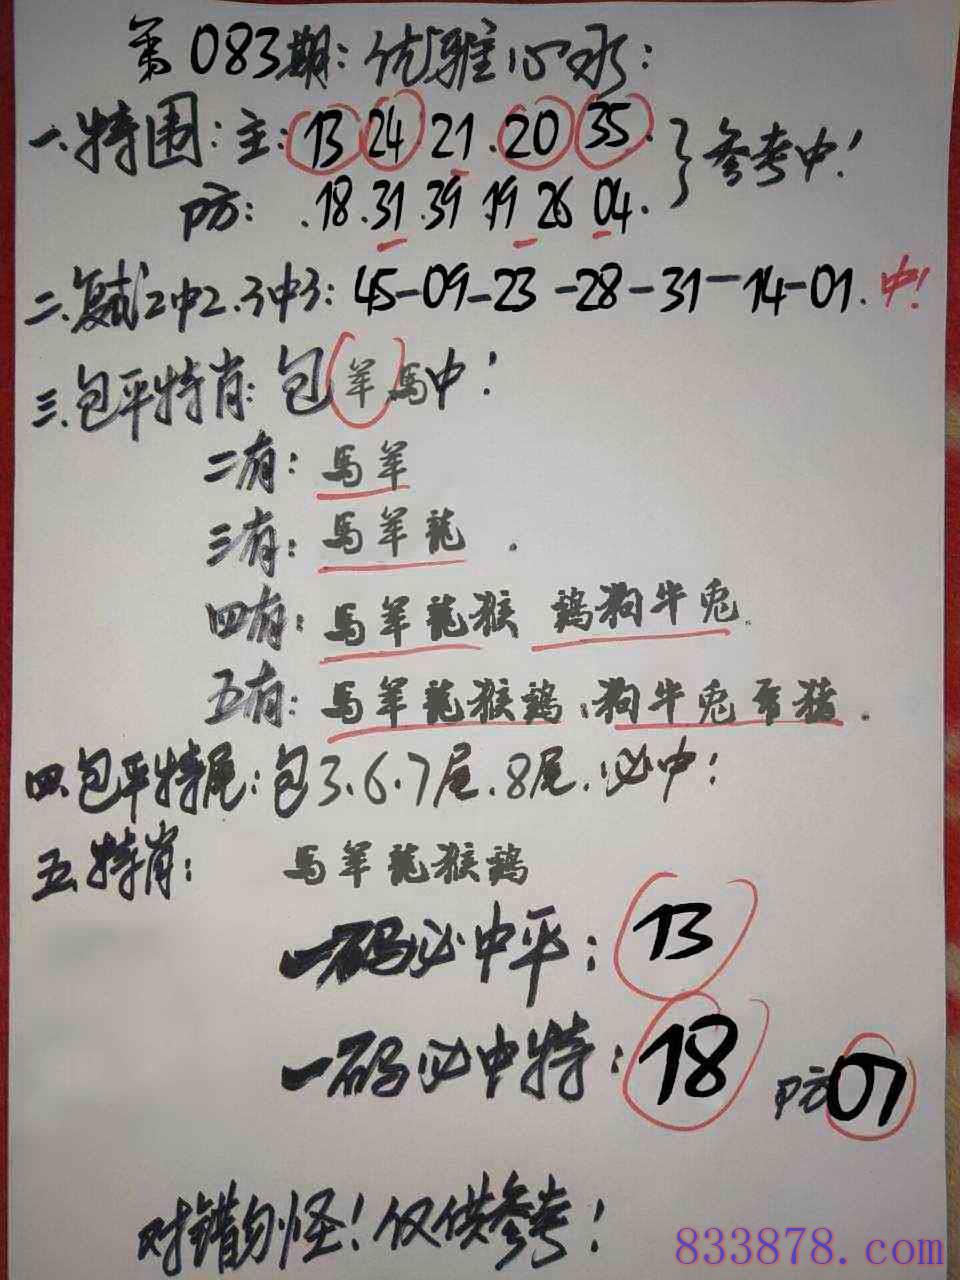 第083期:优雅心水:
一.特围:主:13 24.21.20 35.
防:.18.31.39.19 26 04.
}参考中!
二.复试2中2.3中3:45-09-23-28-31-14-01.中!
三.包平特肖:包羊馬中!
二有:馬羊
三有:馬羊龍.
四有:馬羊龍猴 鷄狗牛兎.
五有:馬羊龍猴鷄、狗牛兎 猪.
四.包平特尾:包3.6.7尾.8尾.必中!
五.特肖:馬羊龍猴鷄
一码必中平:13
一码必中特:18 防07
对错勿怪!仅供参考!
833878.com